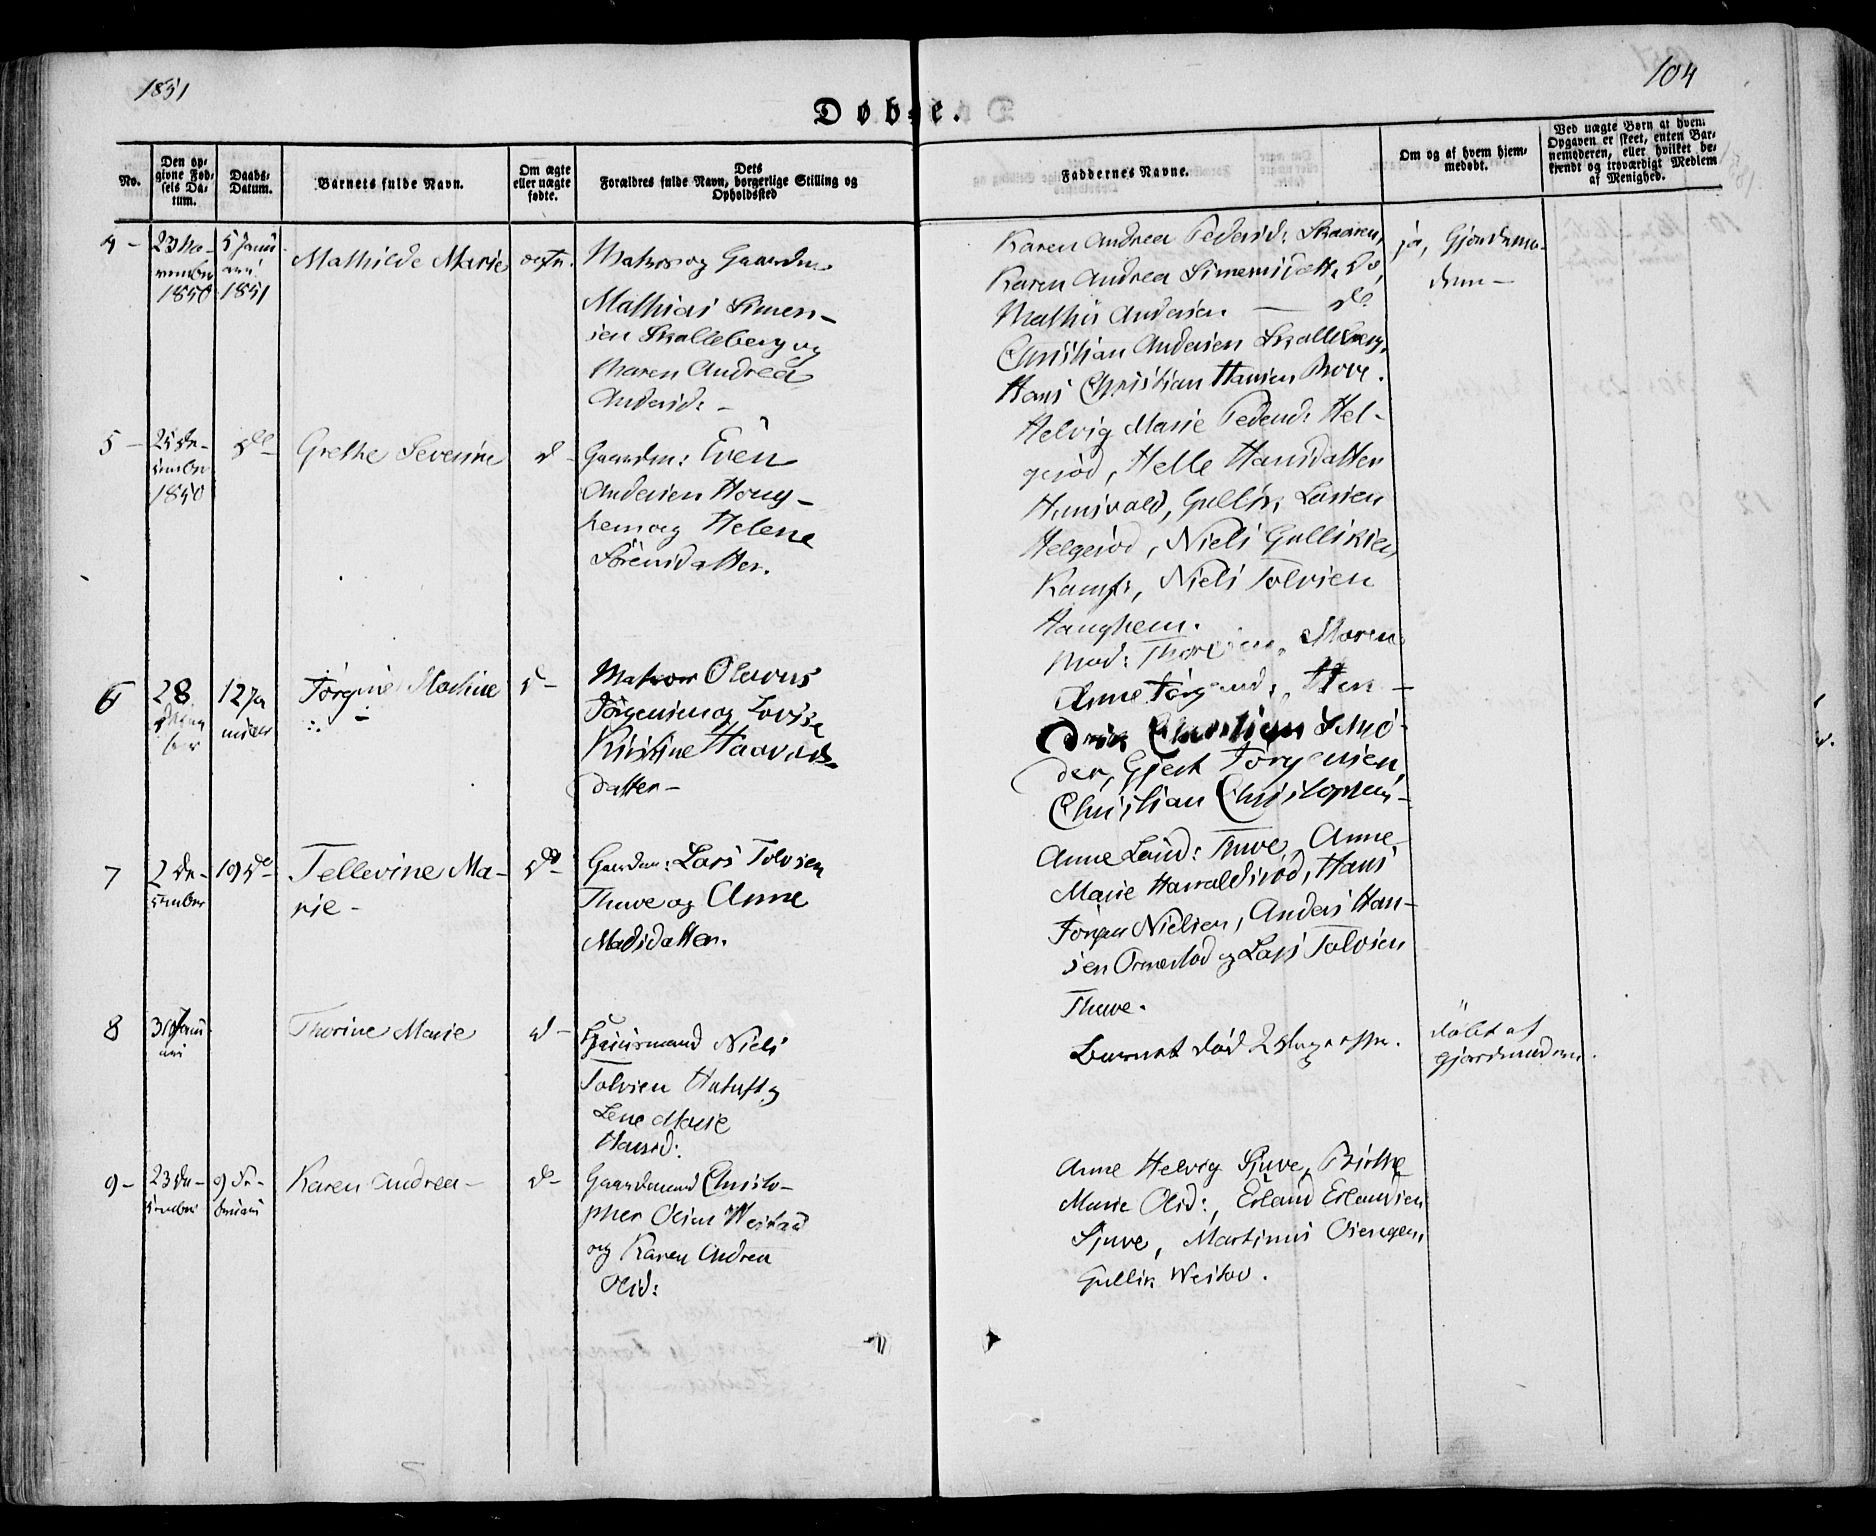 1851
104
Døbte.
No.
Den opgivne Fødsels Datum.
Daabs-Datum.
Barnets fulde Navn.
Om ægte eller uægte fødte.
Dets Forældres fulde Navn, borgerlige Stilling og Opholdssted
Faddernes Navne.
Om og af hvem hjemmedøbt.
Ved uægte Børn at hvem Opgaven er skeet, enten Barnemoderen, eller hvilket bekjendt og troværdigt Medlem af Menighed.
4 -
23 No-
vember
1850
5 Janu
ari
1851
Mathilde Marie
ægte.
og Gaardm
Mathias Simen-
sen Skalleberg og
Maren Andrea
Andersd: -
Karen Andrea Pedersd: Skaaren,
Karen Andrea Simensdatt. do,
Mathis Andersen — do
Christian Andersen Skalleberg,
Hans Christian Hansen Bove.
ja, Gjordemo-
deren -
5 -
25 De-
cember
1850
do
Grethe Severine
d -
Gaardm: Even
Andersen Houg-
hem og Helene
Sørensdatter.
Helvig Marie Pedersd: Hel-
gerød, Helle Hansdatter
Hunsvald, Gullik Larsen
Helgerød, Niels Gulliksen
Kamf:, Niels Tolvsen
Haughem.
6
28
12 Ja
nuar
Jørgine Mathine
d -
Matros Olavus
Jørgensen og Lovise
Kirstine Haavalds-
datter -
Mad: Maren
Anne Jørgensd:, Hen-
drik Christian Schrø-
der, Gjert Jørgensen,
Christian Christophers-
7
2 De-
cember
19 do
Tellevine Ma-
rie -
do -
Gaardm: Lars Tolvsen
Thuve og Anne
Madsdatter.
Anne Larsd: Thuve, Anne
Marie Harraldsrød, Hans
Jørgen Nielsen, Anders Han-
sen Ormestad og Lars Tolvsen
Thuve.
8
30 Janu
ari
Thorine Marie
d -
Huusmand Niels
Tolvsen
Lene Marie
Hansd:
Barnet død 2 Dage efter.
døbt af
gjordemoderen.
9 -
23 De-
cember
9 Fe-
bruari
Karen Andrea -
d -
Gaardmand Christo-
pher Olsen Westad
og Karen Andrea
Olsd:
Anne Helvig Sjuve, Birthe
Marie Olsd:, Erland Erlandsen
Sjuve, Martinus Osengen,
Gullik Westad.